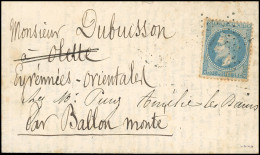 Monsieur Dubuisson
à Olette
Pyrénées-orientales
chez Mr Puig Amélie les Bains
Par Ballon monté